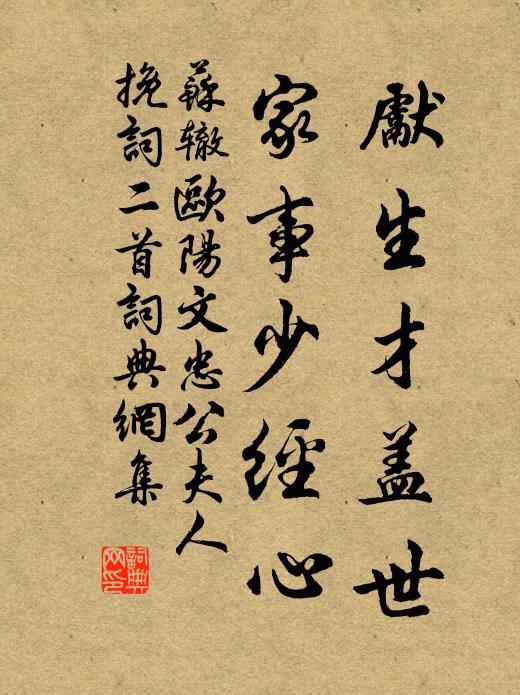 獻生才盖世
家事少經心
蘇辙歐陽文忠公夫人
挽詞二首詞典網集
詞典
网印